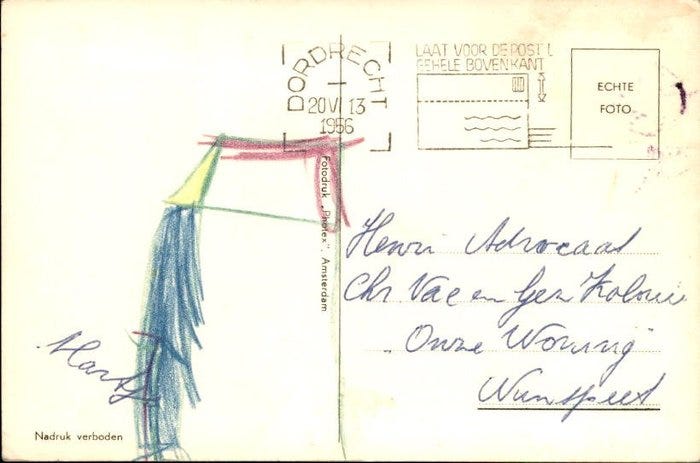 DORDRECHT
20 VI 13
1956
LAAT VOOR DE POST
GEHELE BOVENKANT
ECHTE
FOTO
Fotodruk „Photex”. Amsterdam
Henri Advocaat
Chr Vac en Gez Kolonie
„Onze Woning”
Nunspeet
Nadruk verboden